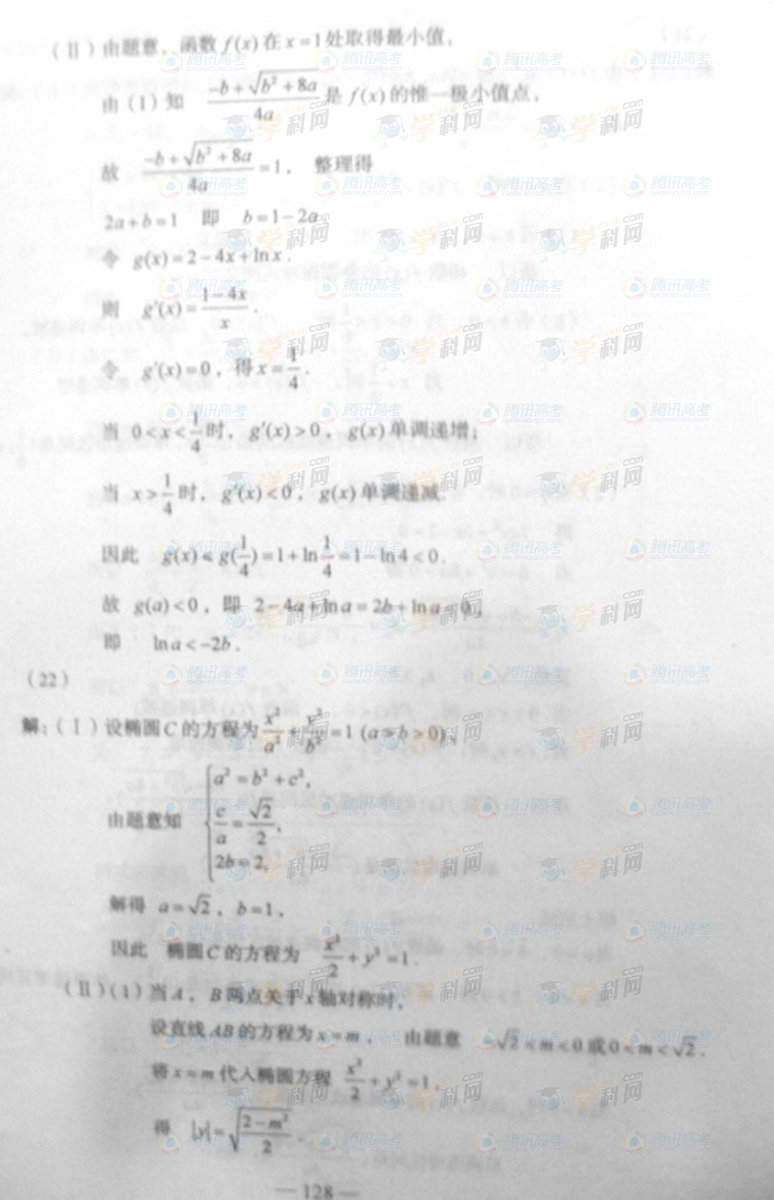 （Ⅱ）由题意，函数 f(x) 在 x=1 处取得最小值，
由（1）知 (-b+√(b²+8a))/(4a) 是 f(x) 的惟一极小值点，
故 (-b+√(b²+8a))/(4a)=1， 整理得
2a+b=1 即 b=1-2a
令 g(x)=2-4x+lnx．
则 g′(x)=(1-4x)/x．
令 g′(x)=0，得 x=1/4．
当 0<x<1/4 时，g′(x)>0，g(x) 单调递增；
当 x>1/4 时，g′(x)<0，g(x) 单调递减．
因此 g(x)≤g(1/4)=1+ln1/4=1-ln4<0．
故 g(a)<0，即 2-4a+lna=2b+lna<0，
即 lna<-2b．
（22）
解：（Ⅰ）设椭圆 C 的方程为 x²/a²+y²/b²=1 (a>b>0)，
由题意知 { a²=b²+c²,
c/a=√2/2,
2b=2,
解得 a=√2，b=1，
因此 椭圆 C 的方程为 x²/2+y²=1．
（Ⅱ）（1）当 A，B 两点关于 x 轴对称时，
设直线 AB 的方程为 x=m， 由题意 √2<m<0 或 0<m<√2．
将 x=m 代入椭圆方程 x²/2+y²=1，
得 |y|=√((2-m²)/2)．
— 128 —
学科网
腾讯高考